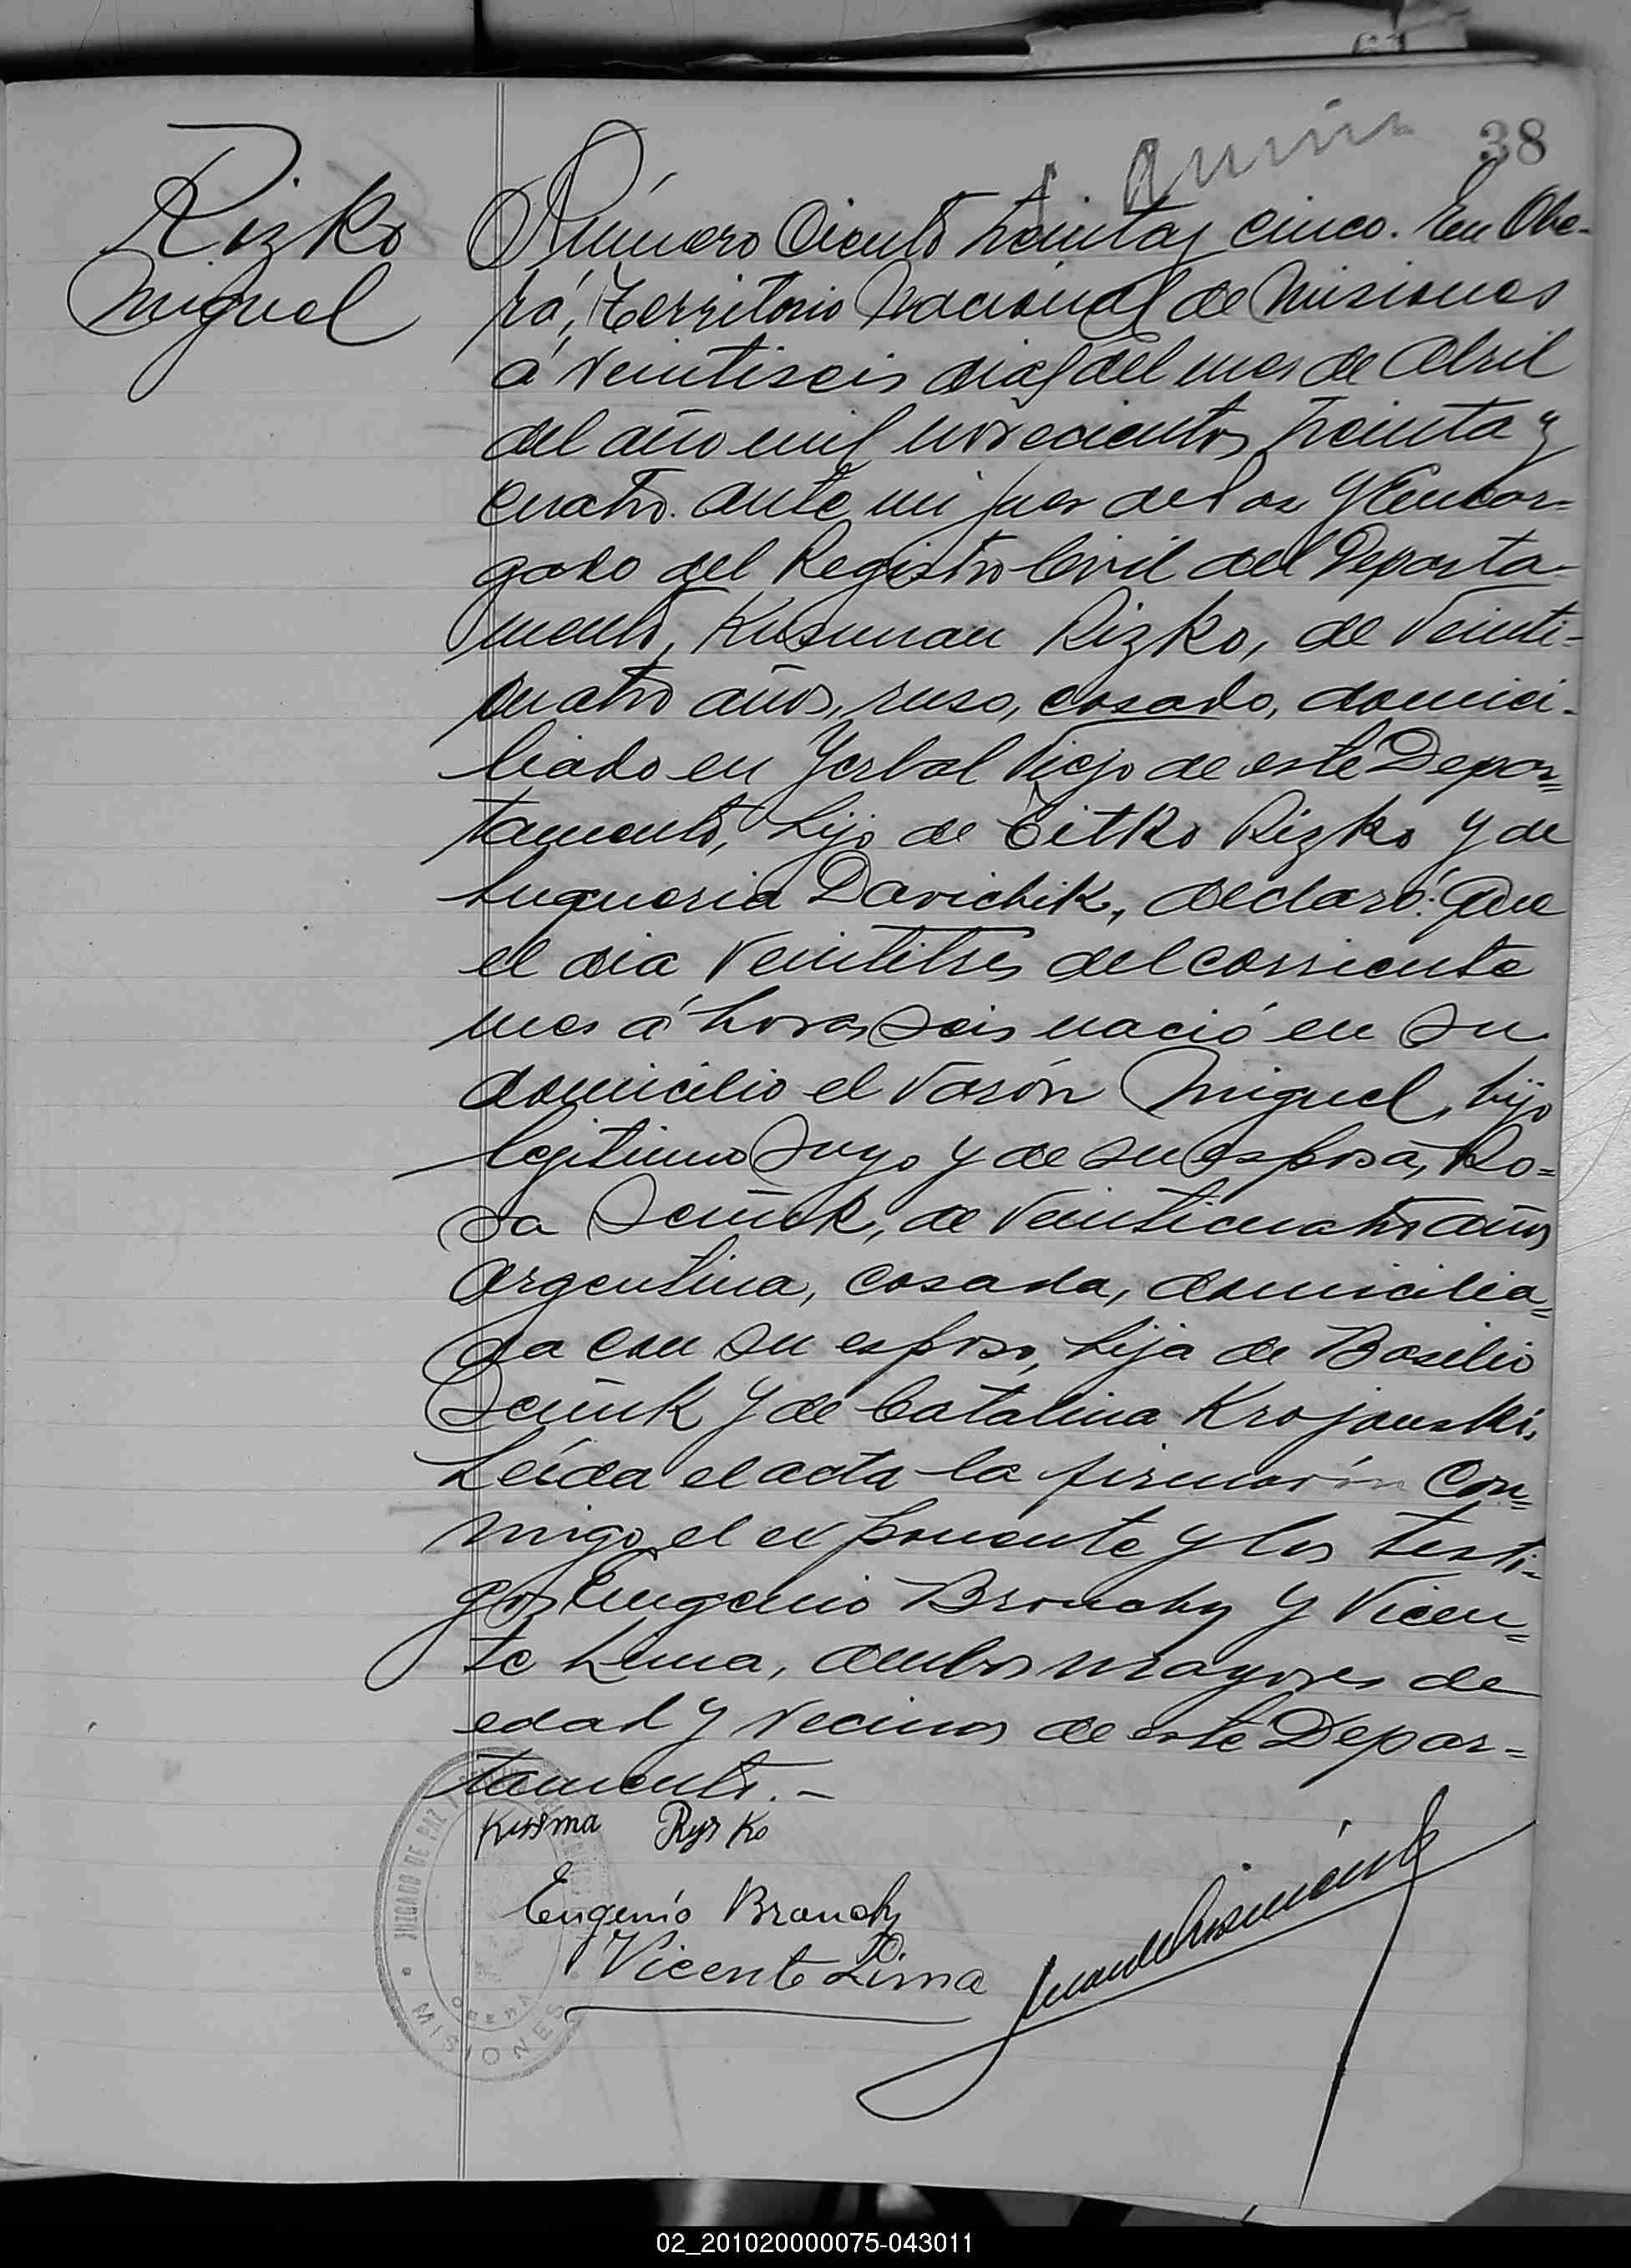 38
Rizko
Miguel
Número Ciento treinta y cinco. En Obe-
rá, Territorio Nacional de Misiones
á veintiseis dias del mes de Abril
del año mil novecientos treinta y
cuatro. ante mi Juez de Paz y Encar=
gado del Registro Civil del Departa-
mento, Kusman Rizko, de veinti-
cuatro años, ruso, casado, domici-
liado en Yerbal Viejo de este Depar=
tamento, hijo de Titko Rizko y de
Davichik, declaró: Que
el dia veintitrés del corriente
mes á horas seis nació en su
domicilio el varón Miguel, hijo
legitimo suyo y de su esposa, Ro=
sa Señuk, de veinticuatro años
argentina, casada, domicilia=
da con su esposo, hija de Basilio
Señuk y de Catalina Krojanski.
Leída el acta la firmarón con=
migo el exponente y los testi=
gos Eugenio Bronchy y Vicen=
te Lima, ambos mayores de
edad y vecinos de este Depar=
tamento.-
Kusma Ryzko
Eugenio Branchy
Vicente Lima
JUZGADO DE PAZ
OBERÁ
MISIONES
02_201020000075-043011